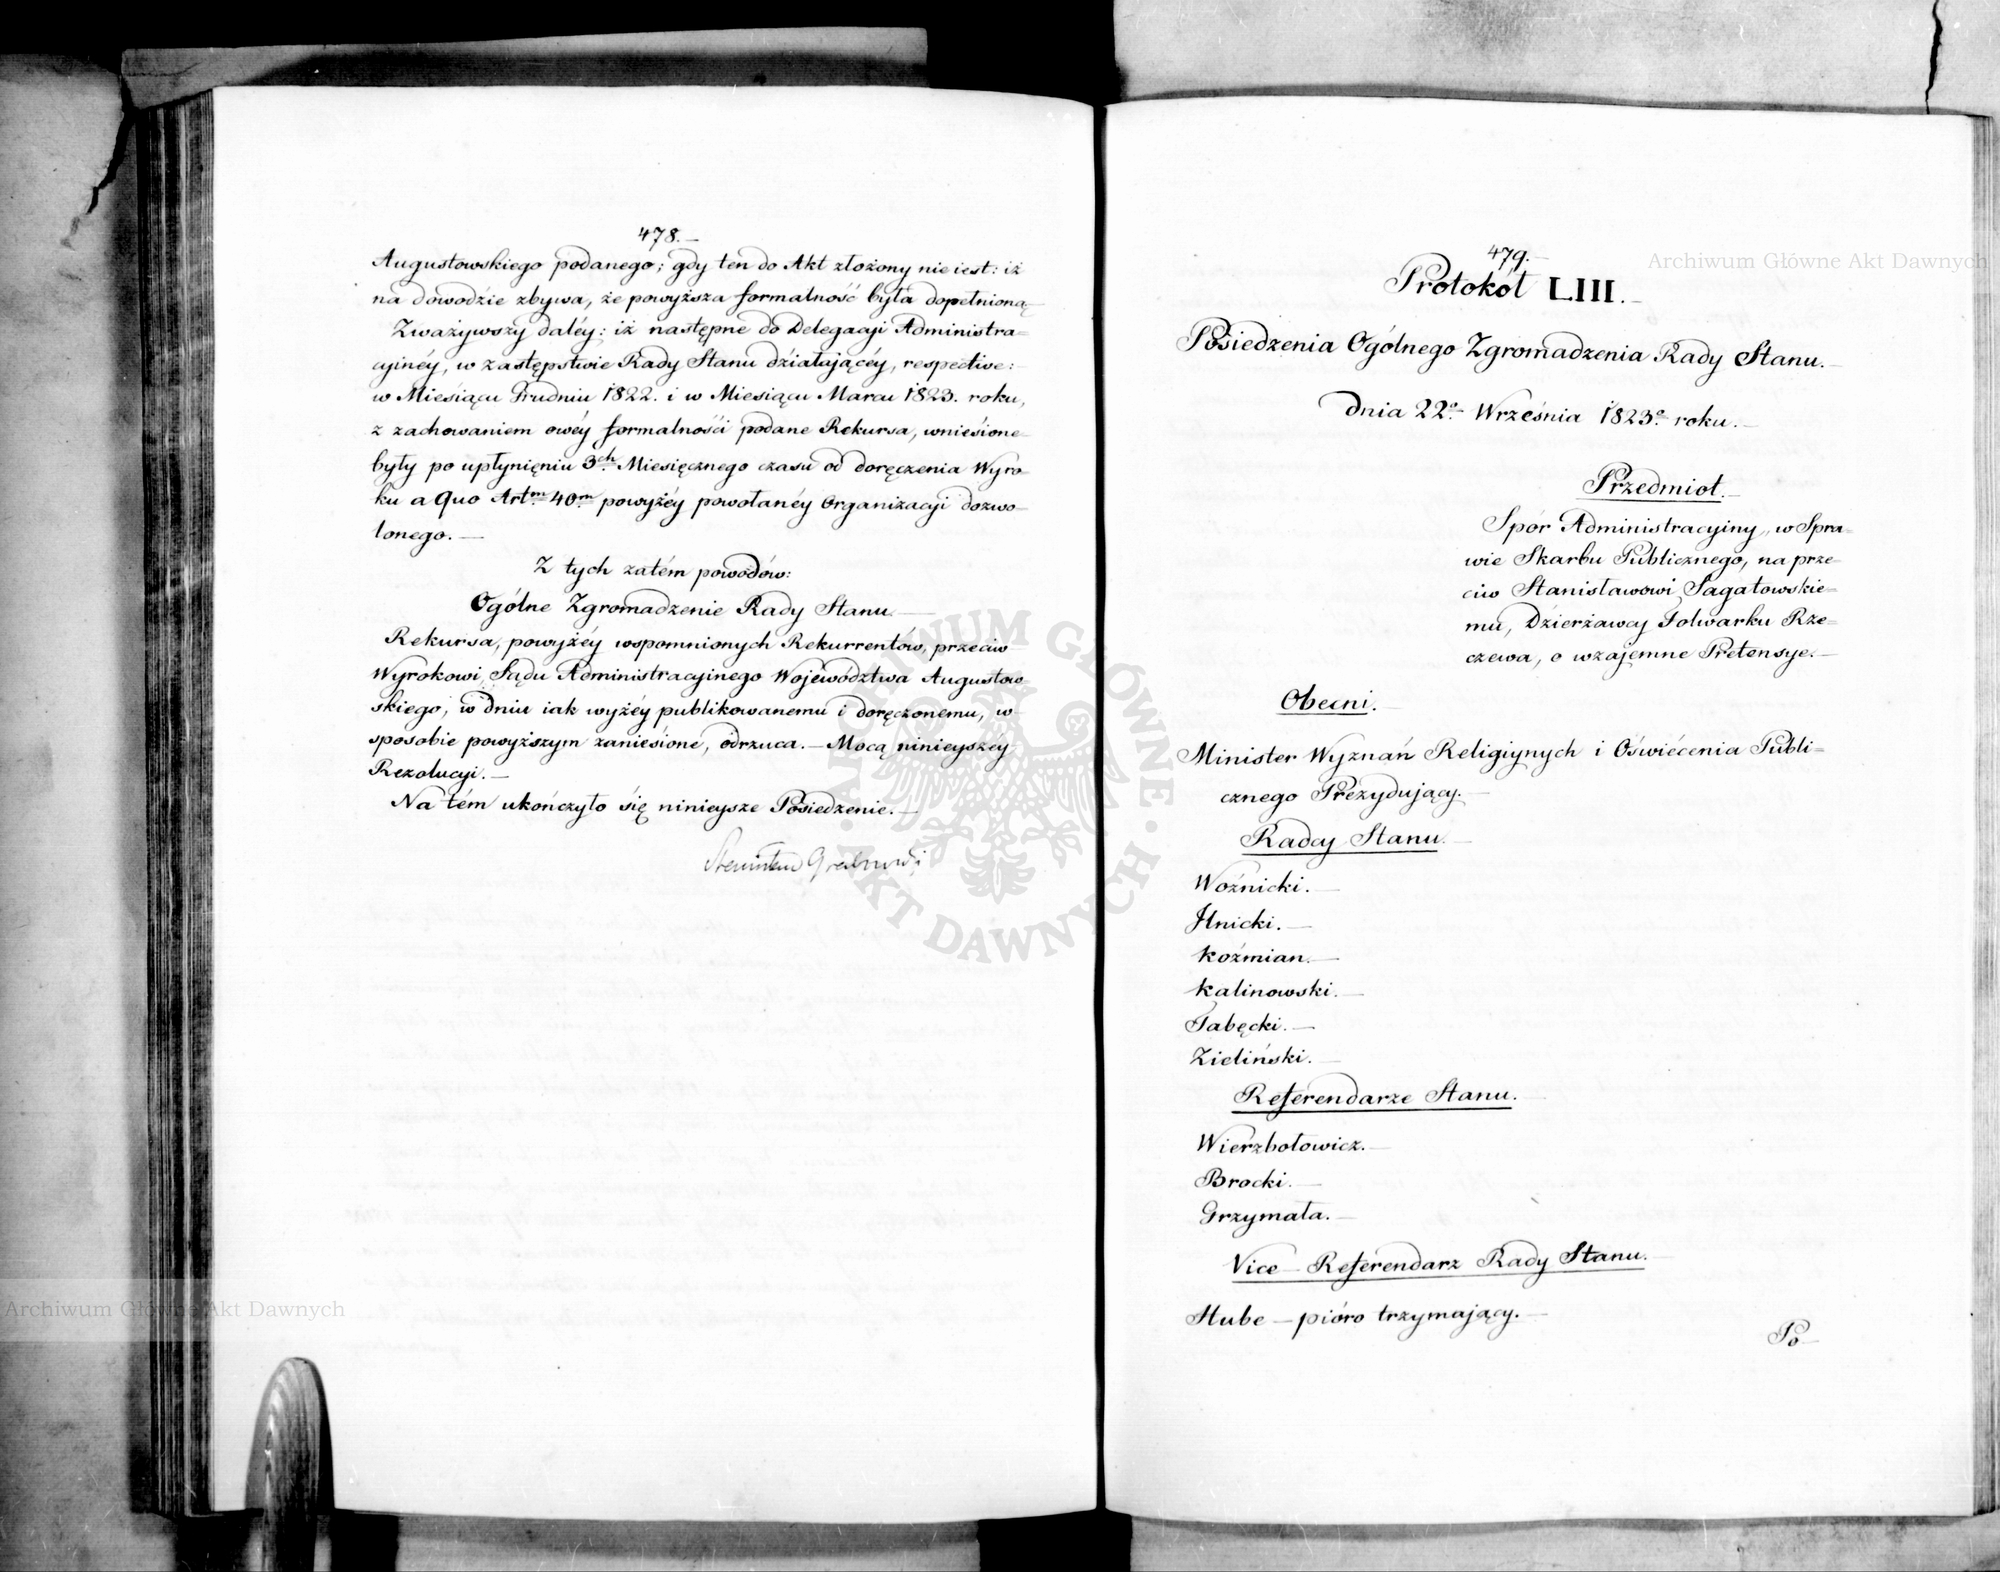 478.
Augustowskiego podanego; gdy ten do Akt złożony nie iest: iż
na dowodzie zbywa, że powyższa formalność była dopełnioną
Zważywszy daléy: iż następne do Delegacyi Administra-
cyinéy, w zastępstwie Rady Stanu działającéy, respective:
w Miesiącu Grudniu 1822. i w Miesiącu Marcu 1823. roku,
z zachowaniem owéy formalności podane Rekursa, wniesione
były po upłynięniu 3ch Miesięcznego czasu od doręczenia Wyro-
ku a Quo Artm 40m powyżéy powołanéy Organizacyi dozwo-
lonego. —
Z tych zatém powodów:
Ogólne Zgromadzenie Rady Stanu. —
Rekursa, powyżéy wspomnionych Rekurrentów, przeciw
Wyrokowi, Sądu Administracyinego Województwa Augustow-
skiego, w dniu iak wyżéy publikowanemu i doręczonemu, w
sposobie powyższym zaniesione, odrzuca. — Mocą ninieyszéy
Rezolucyi. —
Na tém ukończyło się ninieysze Posiedzenie. —
Stanisław Grabowski
479.
Protokół LIII. —
Posiedzenia Ogólnego Zgromadzenia Rady Stanu. —
Dnia 22o Września 1823o roku. —
Przedmiot. —
Spór Administracyiny, w Spra-
wie Skarbu Publicznego, na prze-
ciw Stanisławowi Sagatowskie-
mu, Dzierżawcy Folwarku Rze-
czewa, o wzajemne Pretensye. —
Obecni. —
Minister Wyznań Religiynych i Oświécenia Publi-
cznego Prezydujący. —
Radcy Stanu. —
Woźnicki. —
Ilnicki. —
Koźmian. —
Kalinowski. —
Tabęcki. —
Zieliński. —
Referendarze Stanu. —
Wierzbołowicz. —
Brocki. —
Grzymała. —
Vice-Referendarz Rady Stanu. —
Hube — pióro trzymający. —
Po-
Archiwum Główne Akt Dawnych
Archiwum Główne Akt Dawnych
ARCHIWUM GŁÓWNE · AKT DAWNYCH ·